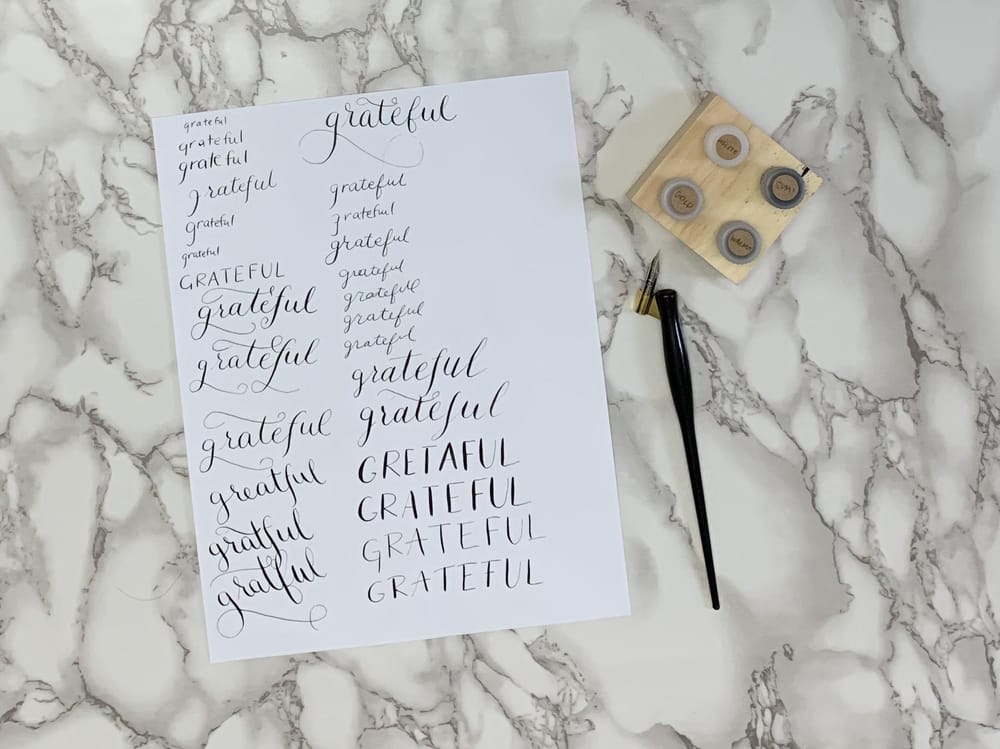 grateful
grateful
grateful
grateful
grateful
grateful
GRATEFUL
grateful
grateful
grateful
greatful
gratful
gratful
grateful
grateful
grateful
grateful
grateful
grateful
grateful
grateful
grateful
grateful
GRETAFUL
GRATEFUL
GRATEFUL
GRATEFUL
WHITE
GOLD
SUMI
WALNUT